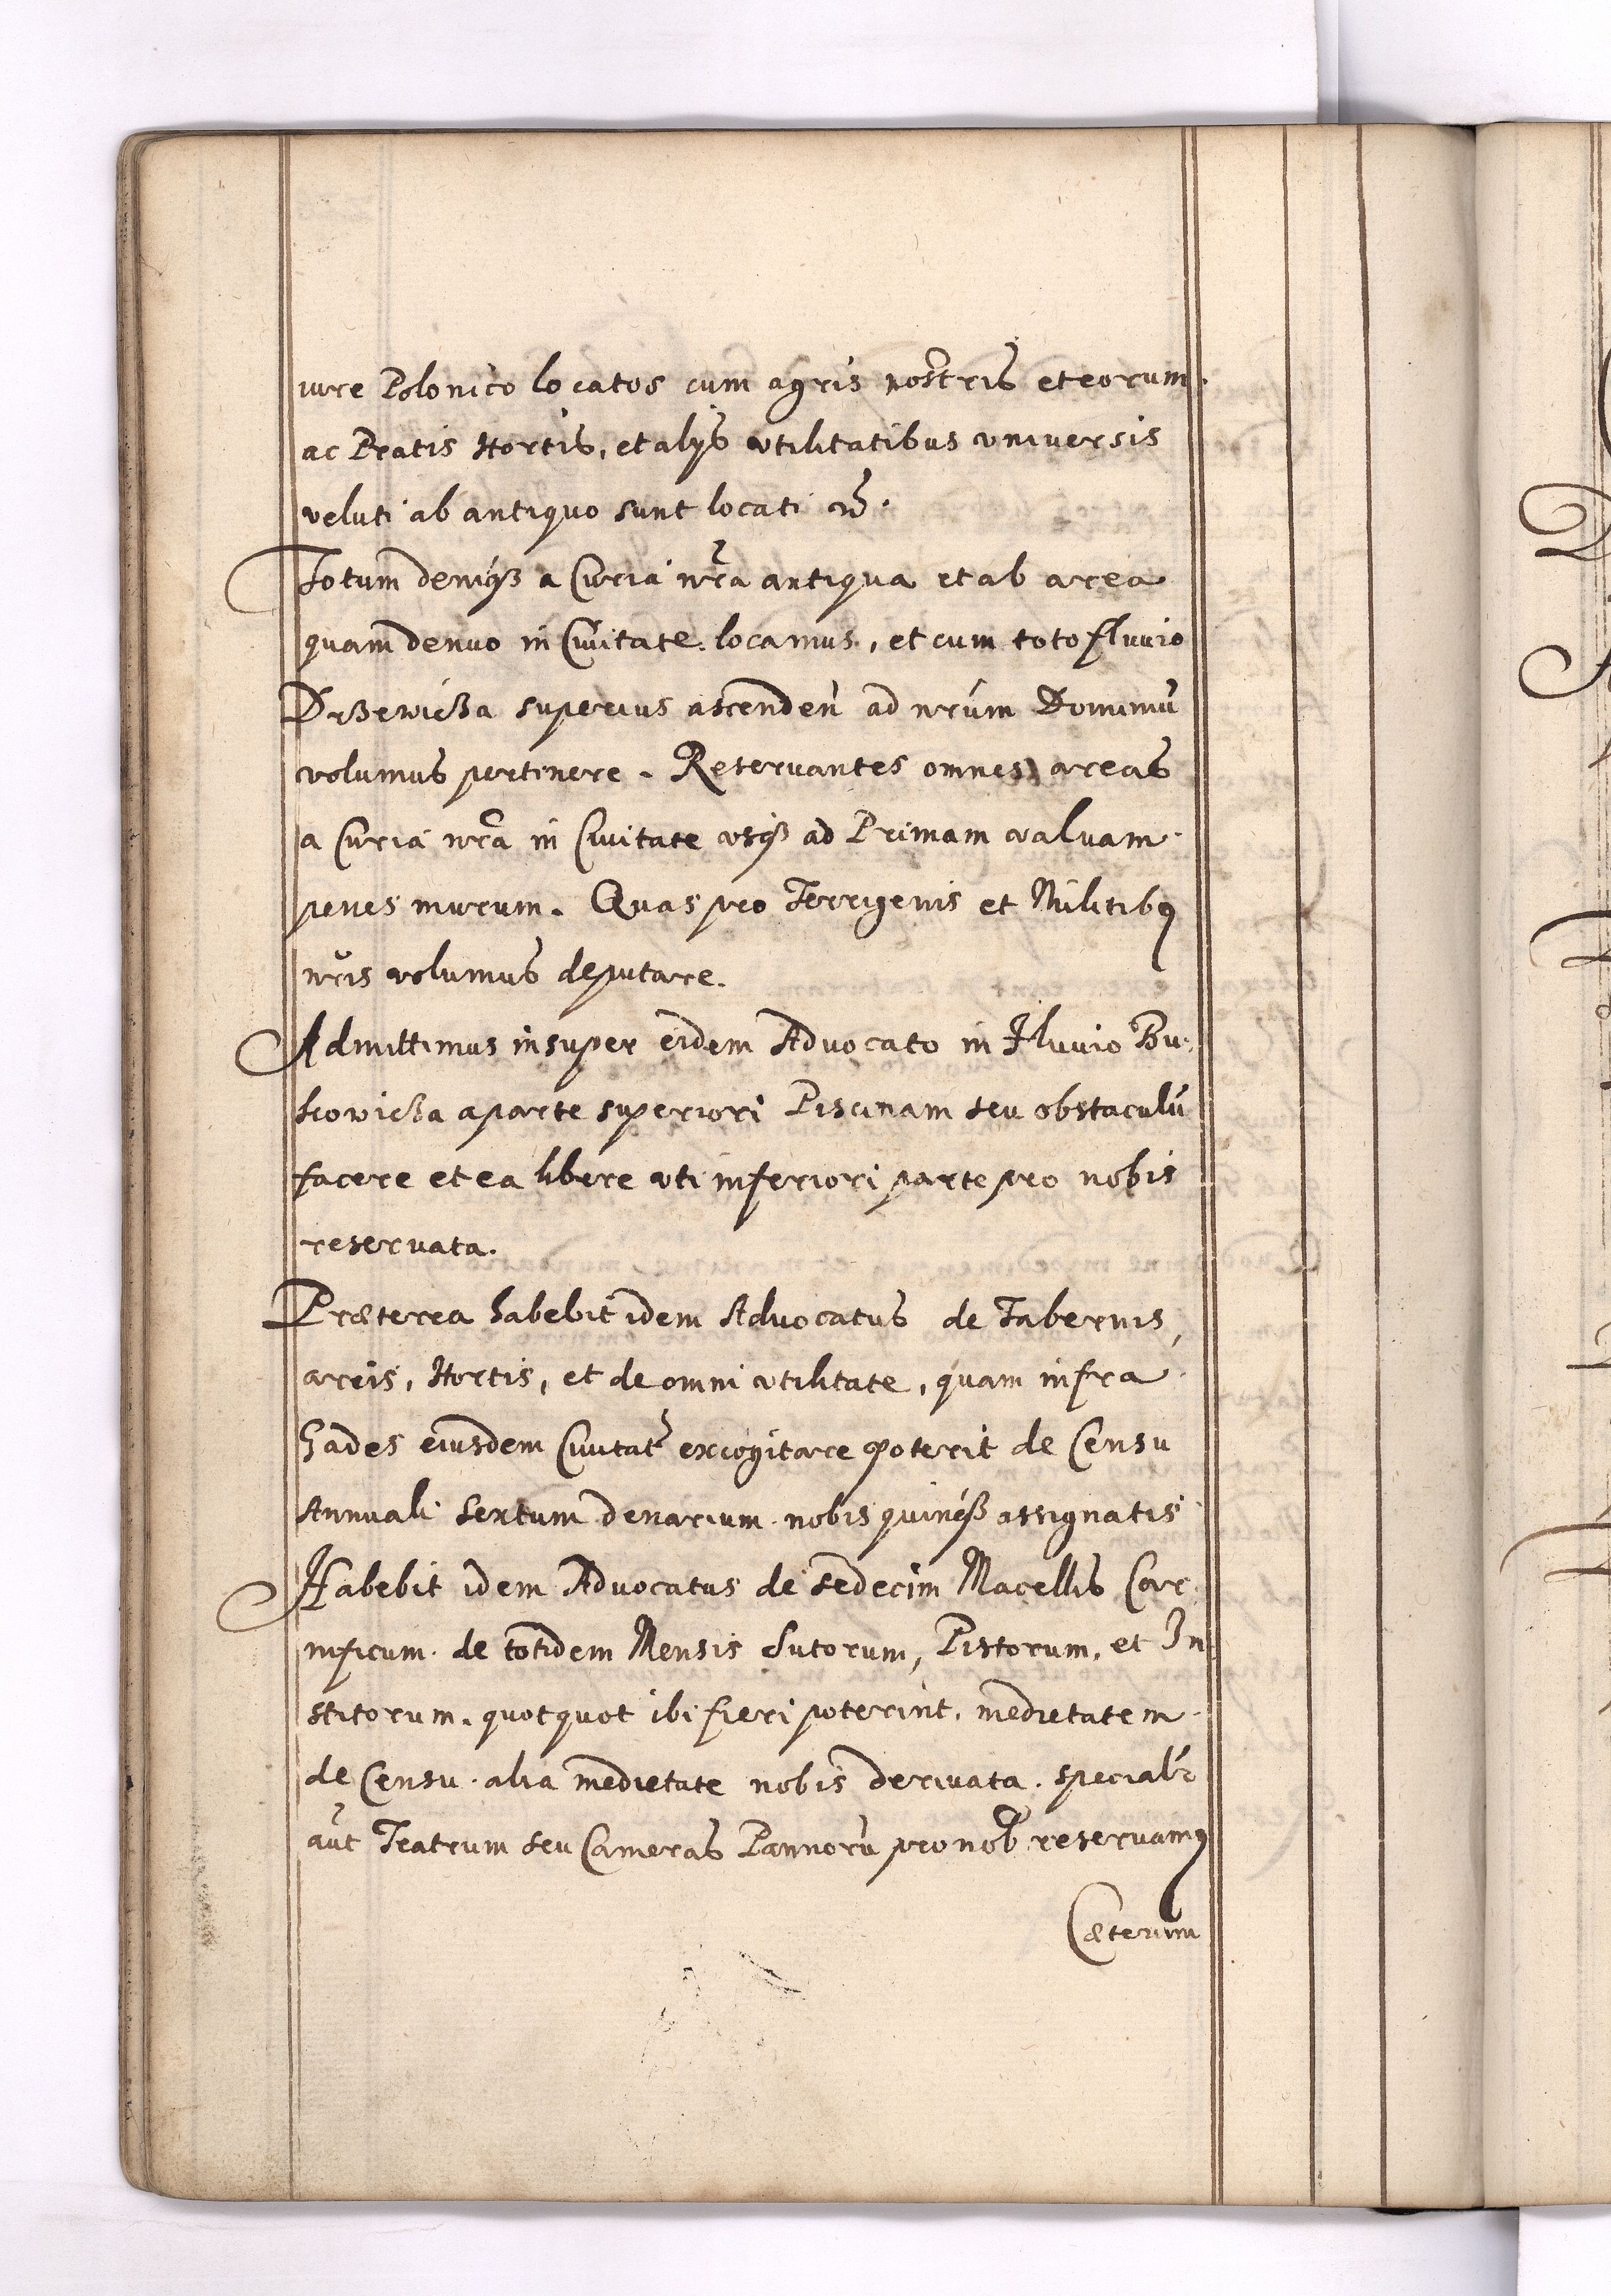 iure Polonico locatos cum agris nostris et eorum
ac Pratis Hortis, et alijs vtilitatibus vniuersis
veluti ab antiquo sunt locati
Totum deniqȝ a Curia nr̃a antiqua et ab area
quam denuo in Ciuitate locamus, et cum toto fluuio
Drzewicza superius ascendeñ ad nrũm Dominiũ
volumus pertinere. Reseruantes omnes areas
a Curia nr̃a in Ciuitate vsqȝ ad Primam valuam
penes murum. Quas pro Terrigenis et Militibꝰ
nr̃is volumus deputare.
Admittimus insuper eidem Aduocato in Fluuio Bu-
scowicza a parte superiori Piscinam seu obstaculũ
facere et ea libere vti inferiori parte pro nobis
reseruata.
Præterea habebit idem Aduocatus de Tabernis,
areis, Hortis, et de omni vtilitate, quam infra
Gades eiusdem Ciuitat̃ excogitare poterit de Censu
Annuali sextum denarium nobis quinqȝ assignatis
Habebit idem Aduocatus de sedecim Macellis Car-
nificum de totidem Mensis Sutorum, Pistorum, et In
stitorum. quotquot ibi fieri poterint. medietatem
de Censu. alia medietate nobis deriuata. specialr̃
aut̃ Teatrum seu Cameras Pannorũ pro nob̃ reseruamꝰ
Cæterum